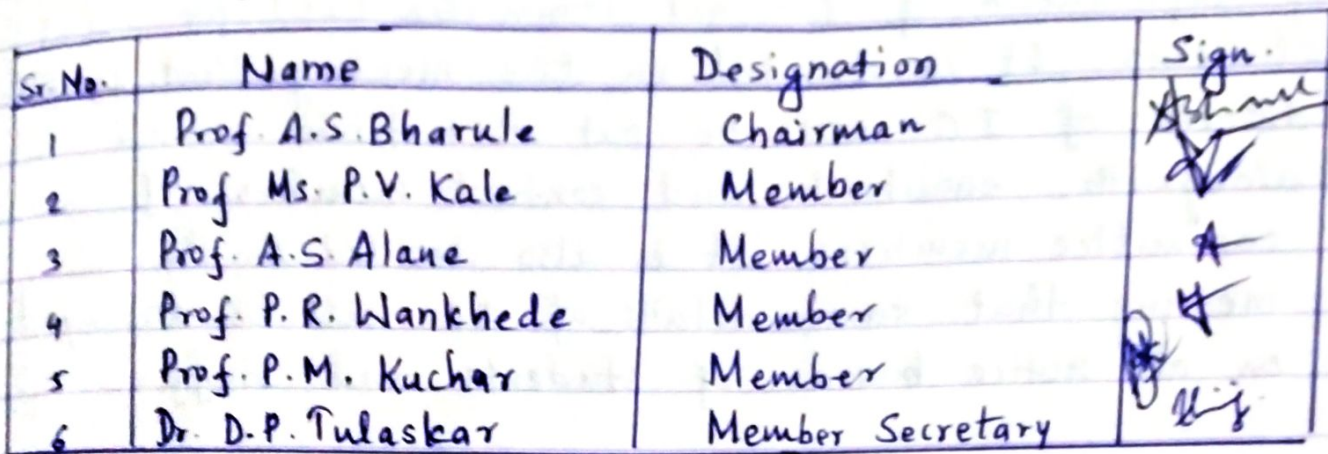 Sr. No. Name Designation Sign.
1 Prof. A.S. Bharule Chairman
2 Prof Ms. P.V. Kale Member
3 Prof. A.S. Alane Member
4 Prof. P.R. Wankhede Member
5 Prof. P.M. Kuchar Member
6 Dr. D.P. Tulaskar Member Secretary